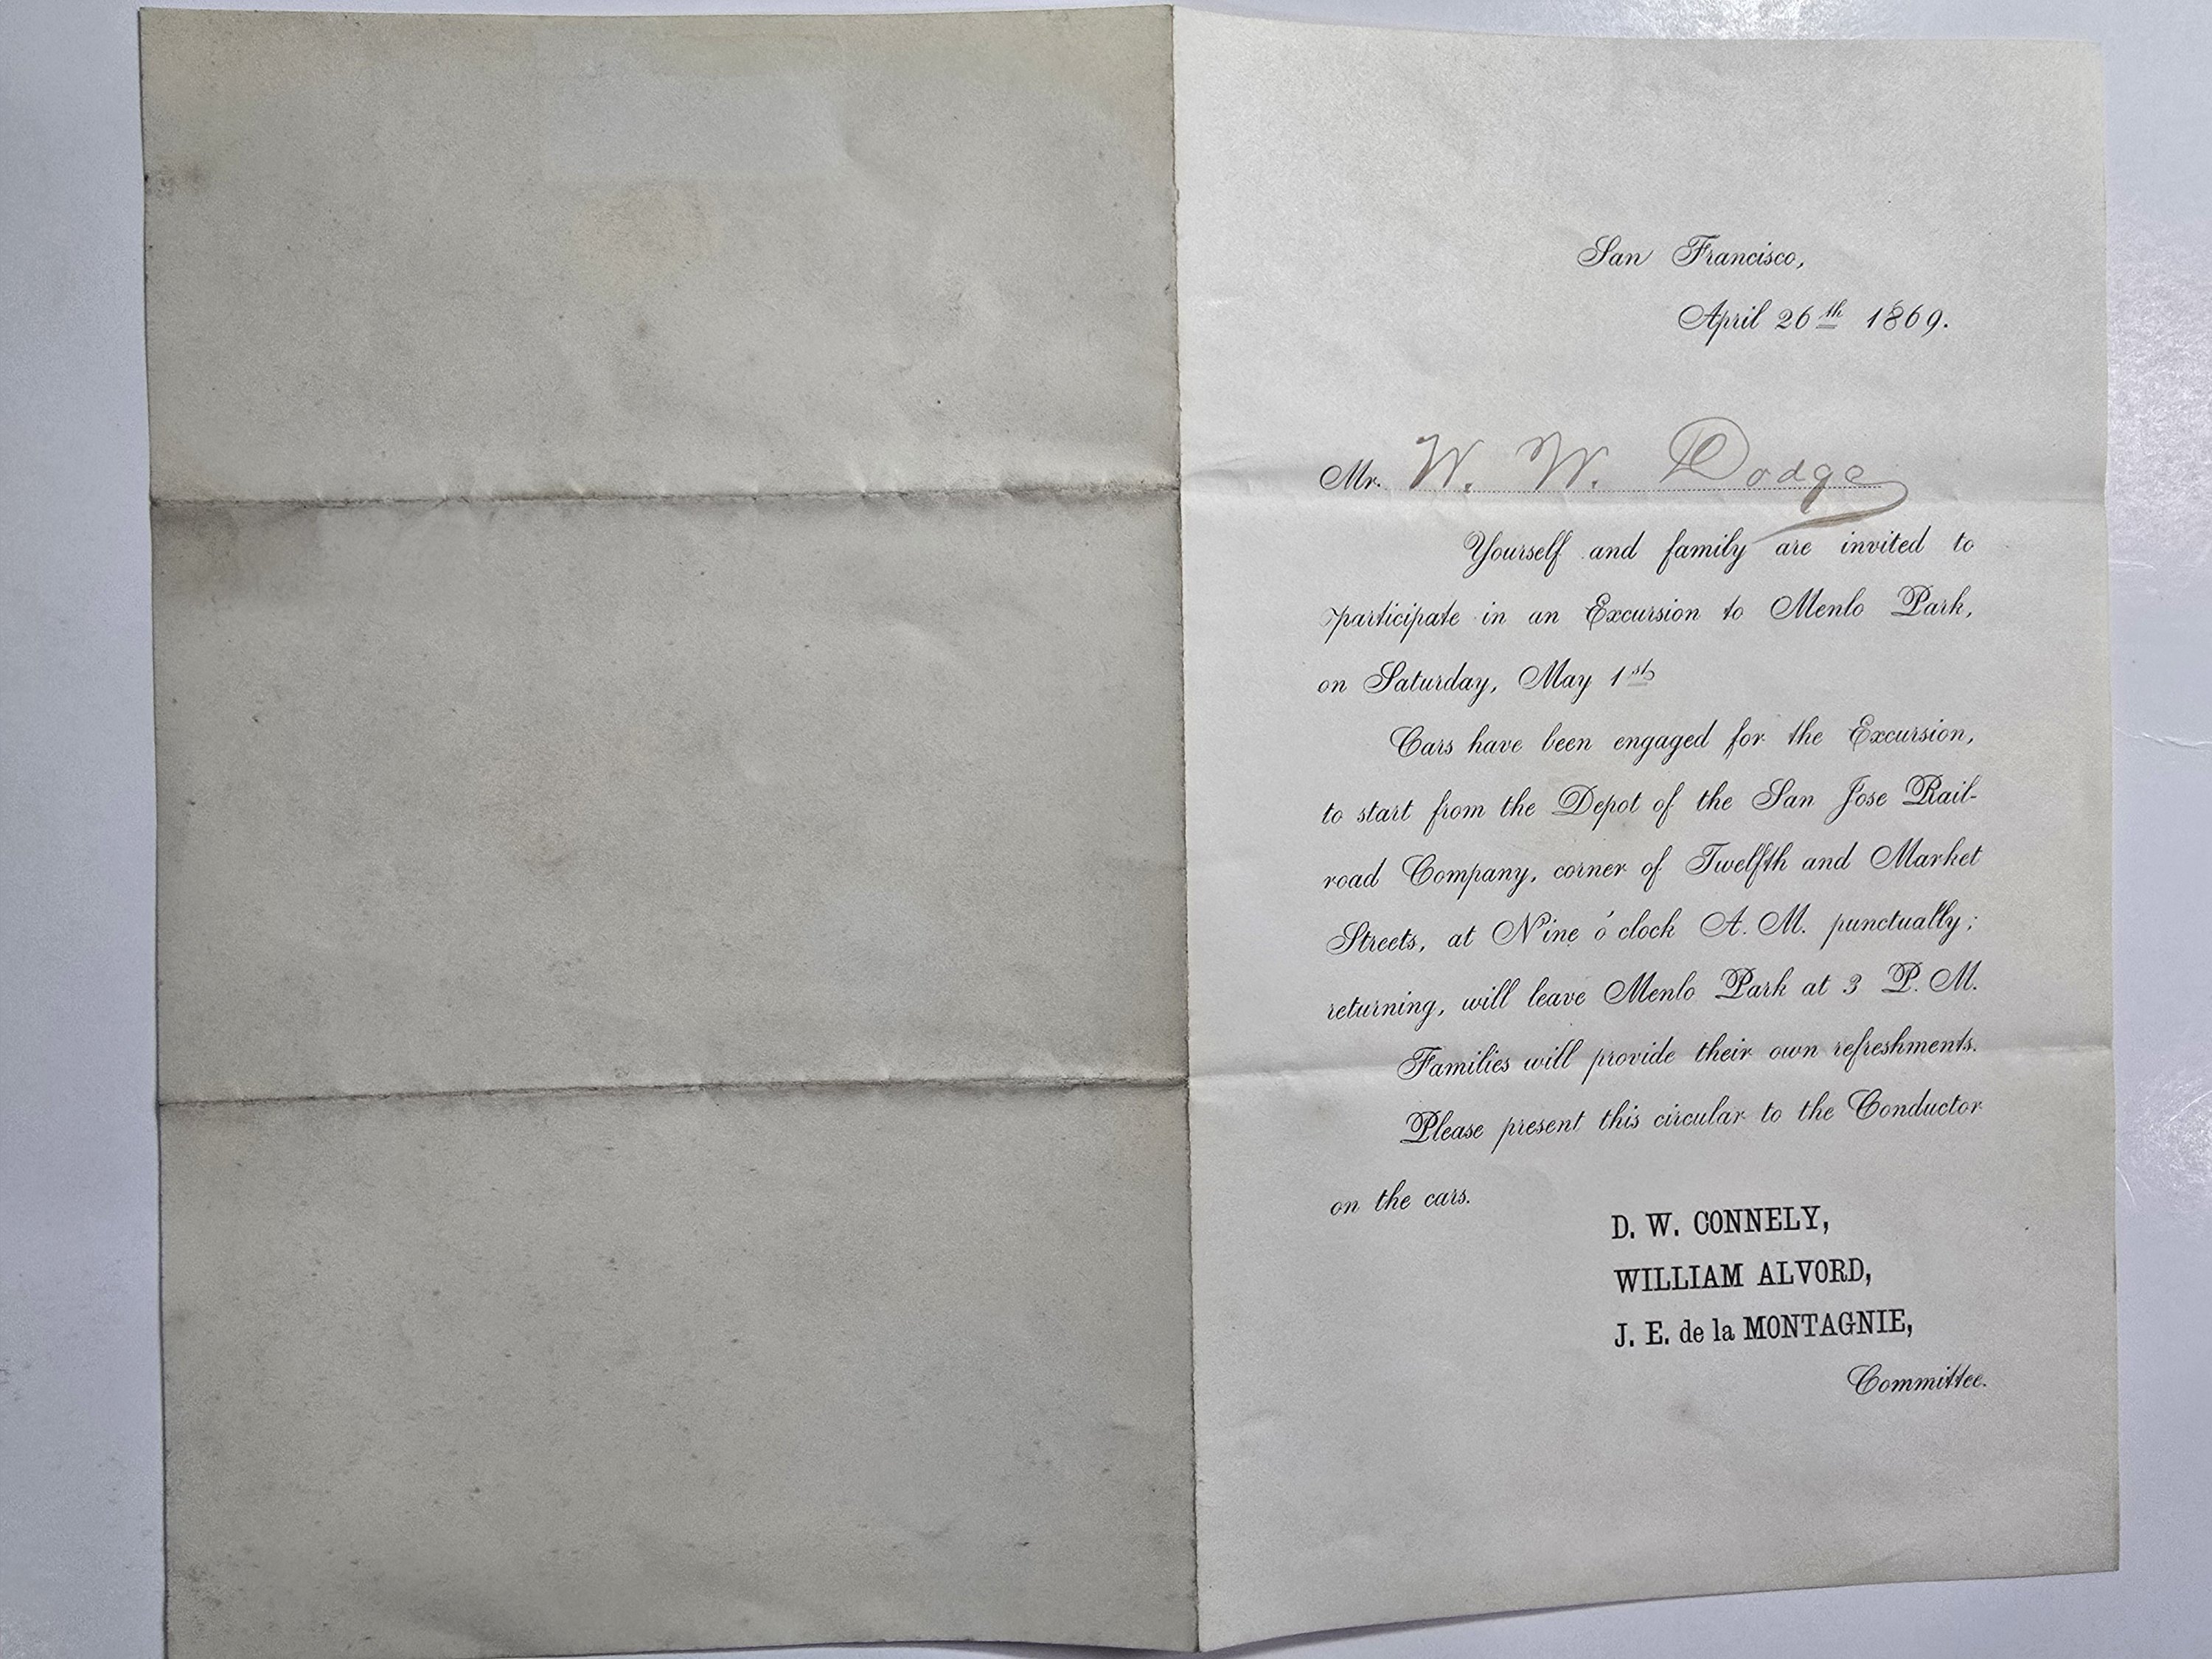 San Francisco,
April 26th 1869.
Mr. W. W. Dodge
Yourself and family are invited to
participate in an Excursion to Menlo Park,
on Saturday, May 1st
Cars have been engaged for the Excursion,
to start from the Depot of the San Jose Rail-
road Company, corner of Twelfth and Market
Streets, at Nine o'clock A. M. punctually;
returning, will leave Menlo Park at 3 P. M.
Families will provide their own refreshments.
Please present this circular to the Conductor
on the cars.
D. W. CONNELY,
WILLIAM ALVORD,
J. E. de la MONTAGNIE,
Committee.